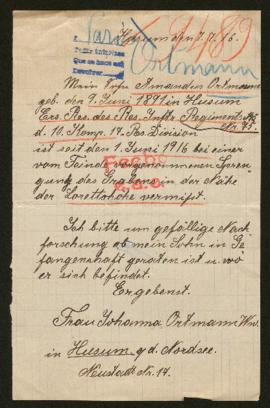 Husum d. 7.7.16.
Ortmann
Mein Sohn Amandus Ortmann
geb. den 9. Juni 1891 in Husum
Ers. Res. des Res. Inftr. Regiments
d. 10. Komp. 17. Res Division
ist seit dem 1. Juni 1916 bei einer
vom Feinde vorgenommenen Spren-
gung des Grabens in der Nähe
der Lorettohöhe vermißt.
Ich bitte um gefällige Nach
forschung ob mein Sohn in Ge
fangenschaft geraten ist u. wo
er sich befindet.
Ergebenst.
Frau Johanna Ortmann Ww.
in Husum a. d. Nordsee.
Neustadt Nr. 17.